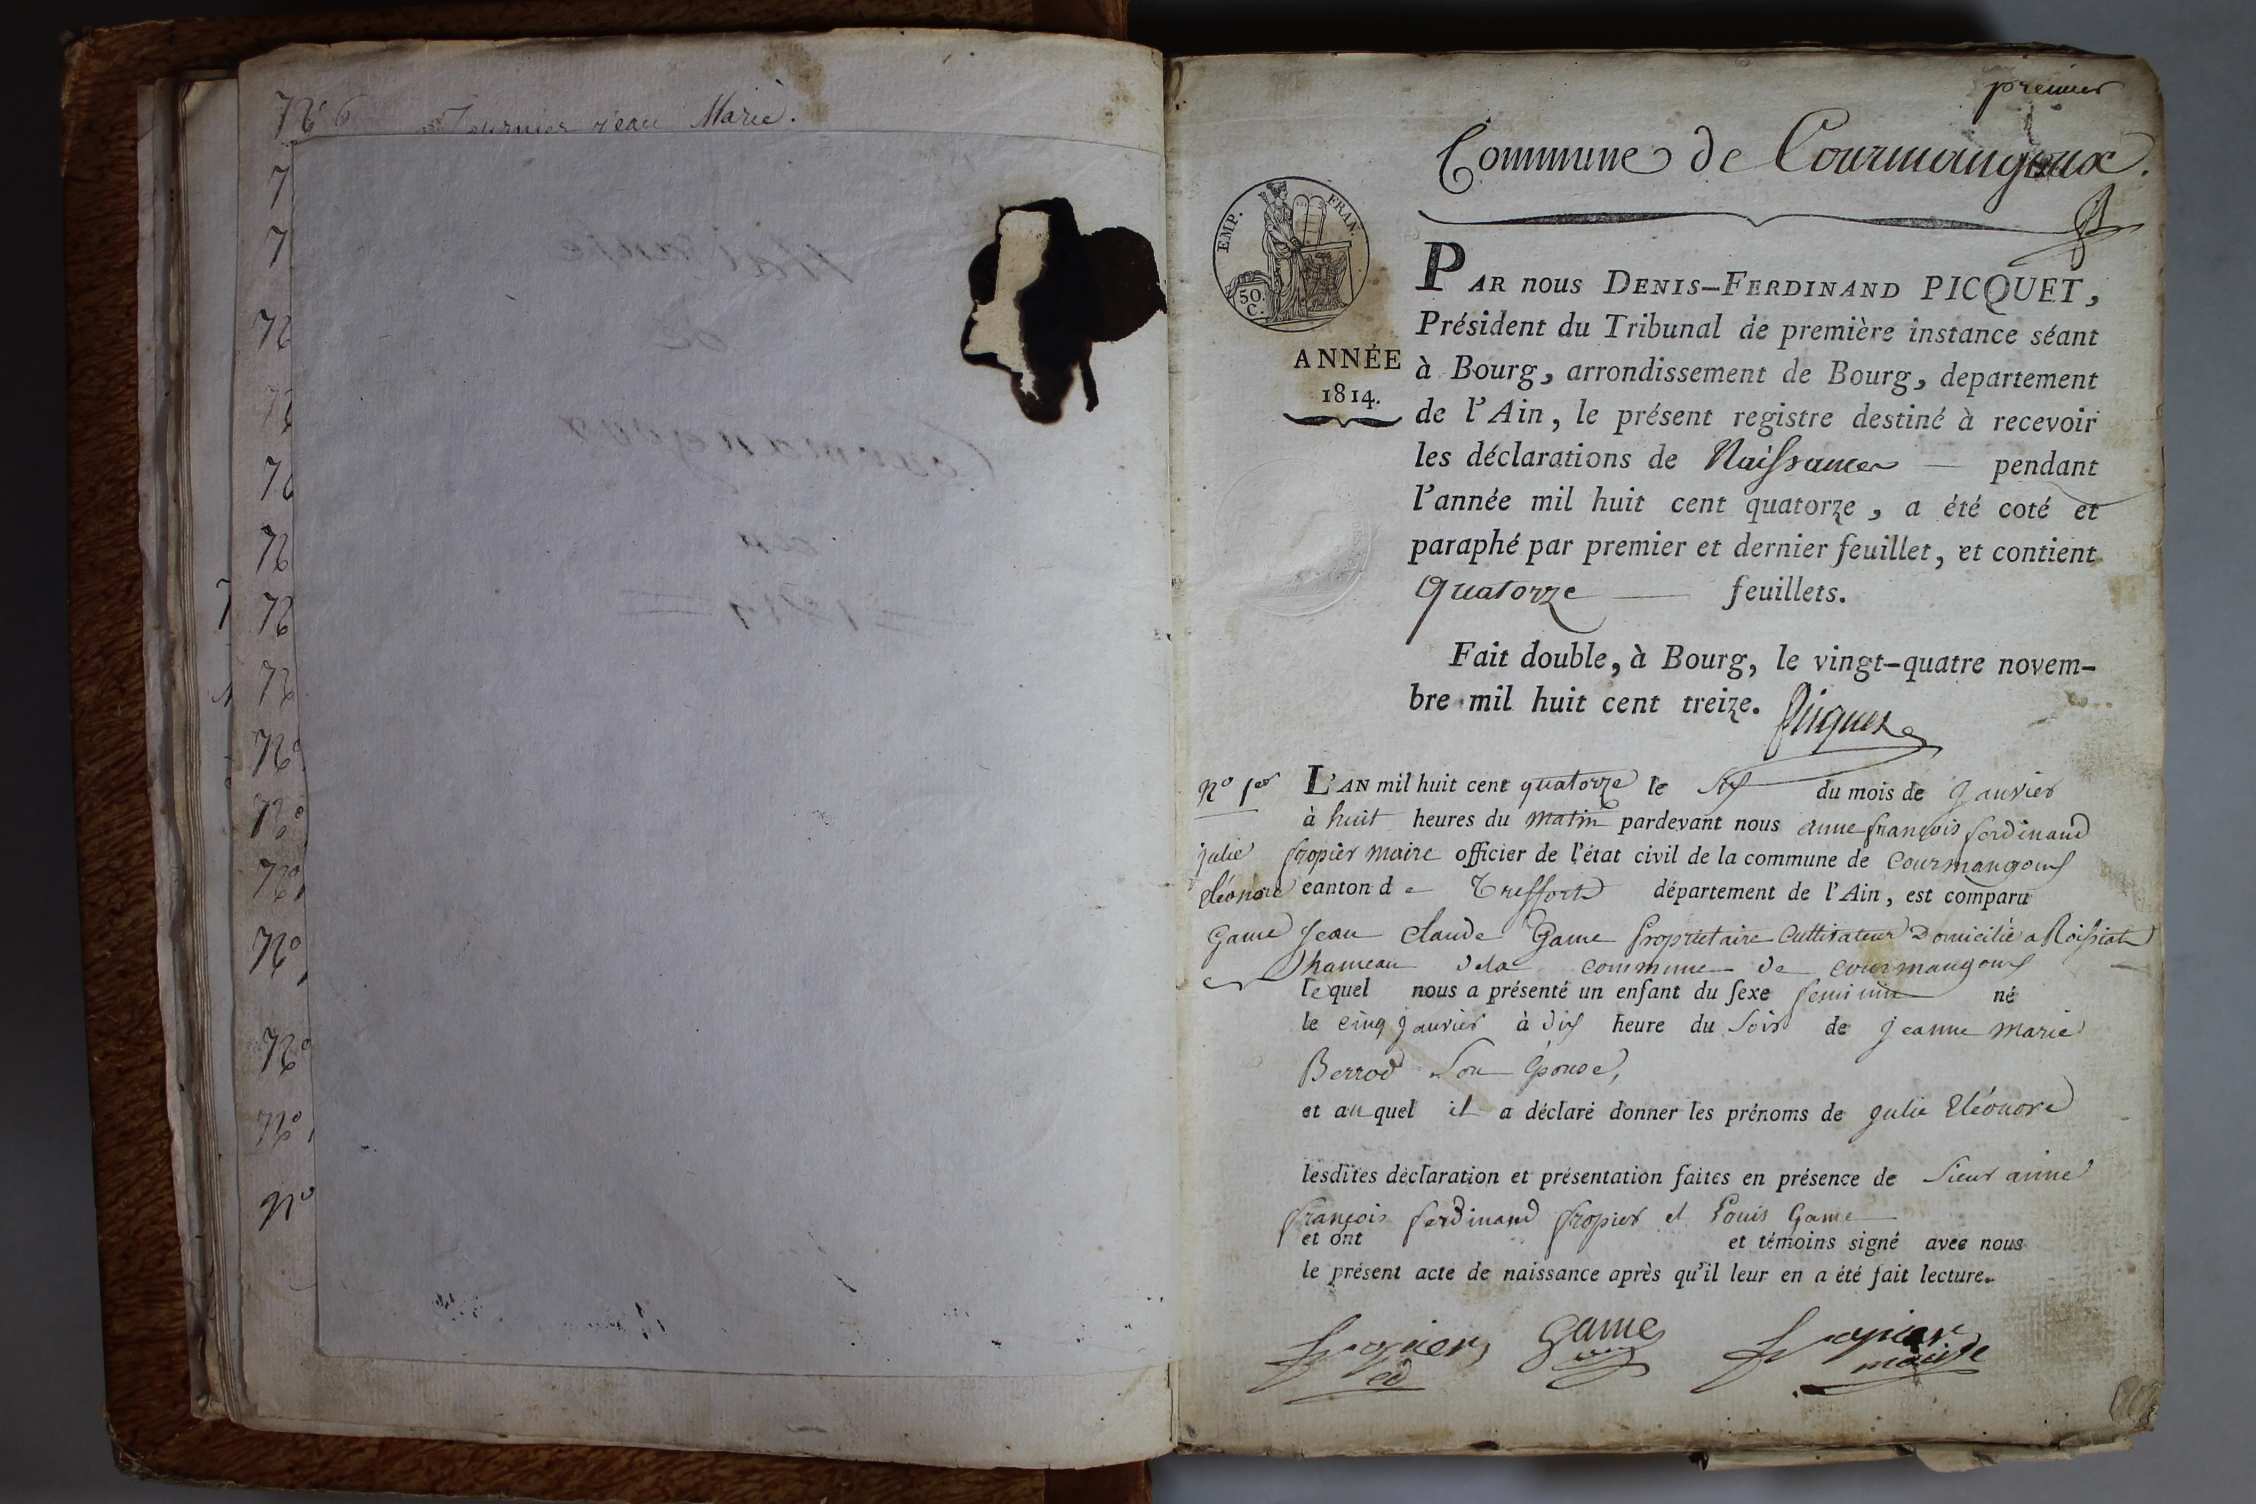 Nº 6 Fournier jean Marie.
Nº
Nº
Nº
Nº
Nº
Nº
premier
Commune de Courmangoux.
EMP. FRAN.
50. C.
ANNÉE
1814.
PAR nous DENIS-FERDINAND PICQUET,
Président du Tribunal de première instance séant
à Bourg, arrondissement de Bourg, departement
de l'Ain, le présent registre destiné à recevoir
les déclarations de Naissances — pendant
l'année mil huit cent quatorze, a été coté et
paraphé par premier et dernier feuillet, et contient
Quatorze — feuillets.
Fait double, à Bourg, le vingt-quatre novem-
bre mil huit cent treize. Picquet
Nº 1er
julie
Eléonore
Game
L'AN mil huit cent quatorze le six du mois de janvier
à huit heures du matin pardevant nous anne françois ferdinand
fropier maire officier de l'état civil de la commune de Courmangoux
canton de Treffort département de l'Ain, est comparu
jean claude Game propriétaire Cultivateur Domicilié a Roissiat
hameau dela commune de courmangoux
lequel nous a présenté un enfant du sexe feminin né
le cinq janvier à dix heure du soir de jeanne marie
Berrod son épouse,
et auquel il a déclaré donner les prénoms de julie Eléonore
lesdites déclaration et présentation faites en présence de sieur anne
françois ferdinand fropier et Louis Game
et ont et témoins signé avec nous
le présent acte de naissance après qu'il leur en a été fait lecture.
fropier fd Game fropier
maire